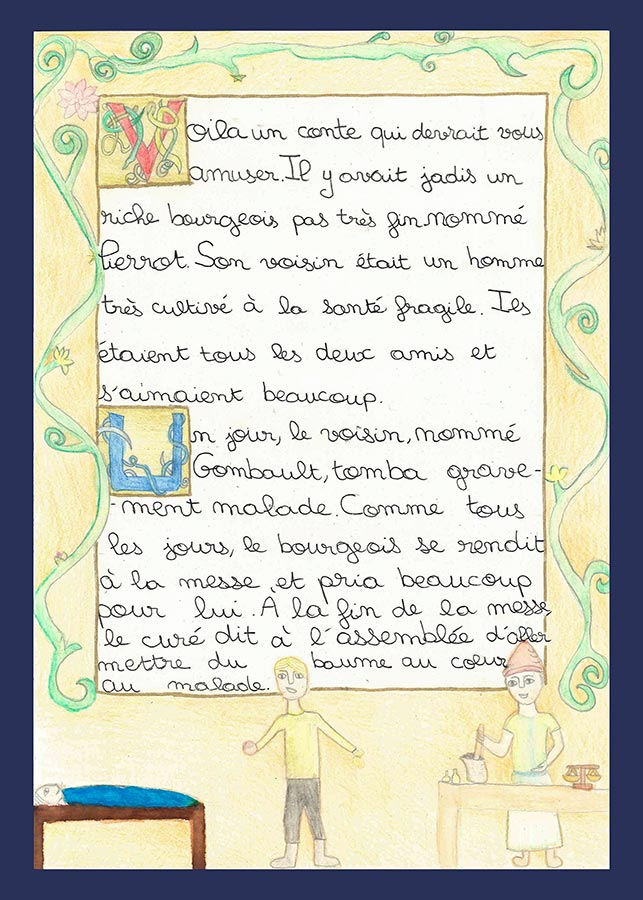 Voila un conte qui devrait vous
amuser. Il y avait jadis un
riche bourgeois pas très fin nommé
Pierrot. Son voisin était un homme
très cultivé à la santé fragile. Ils
étaient tous les deux amis et
s'aimaient beaucoup.
Un jour, le voisin, nommé
Gombault, tomba grave-
-ment malade. Comme tous
les jours, le bourgeois se rendit
à la messe, et pria beaucoup
pour lui. A la fin de la messe,
le curé dit à l'assemblée d'aller
mettre du baume au coeur
au malade.